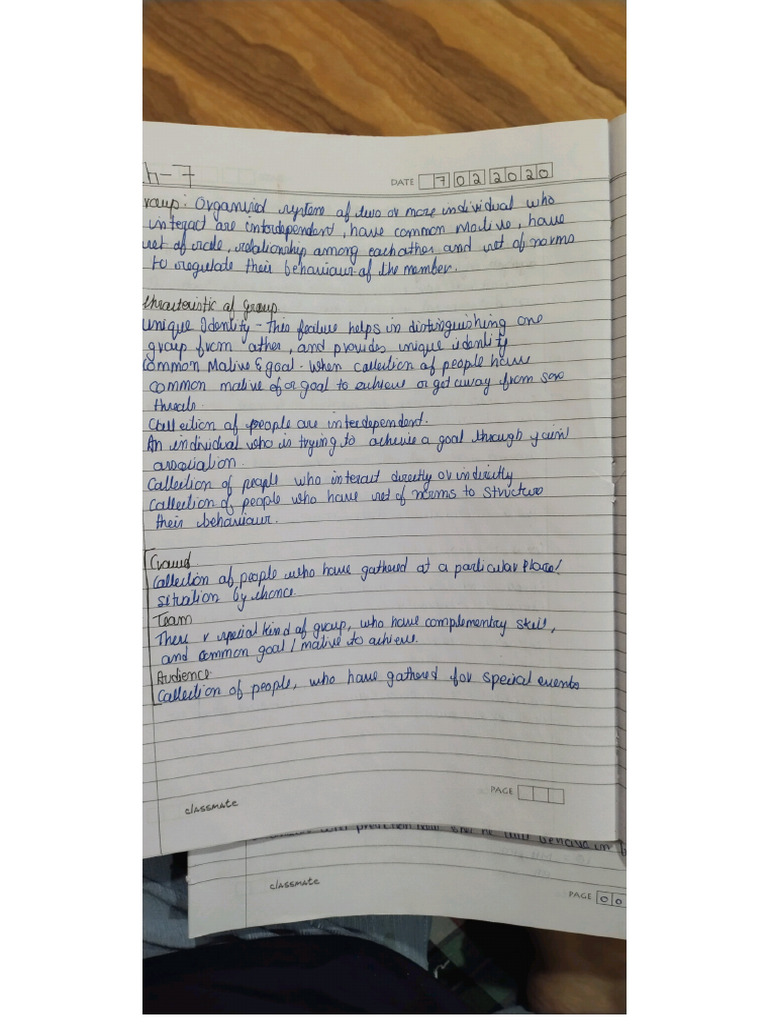 h-7
DATE 7 02 2020
roup: Organized system of two or more individual who
interact are interdependent, have common motive, have
set of role, relationship among eachother and set of norms
to regulate their behaviour of the member.
Characteristic of Group
Unique Identity - This feature helps in distinguishing one
group from other, and provides unique identity
Common Motive & goal - When collection of people have
common motive of or goal to achieve or get away from
threats.
Collection of people are interdependent.
An individual who is trying to achieve a goal through
association.
Collection of people who interact directly or indirectly
Collection of people who have set of norms to structure
their behaviour.
Crowd
Collection of people who have gathered at a particular place/
situation by chance
Team
There r special kind of group, who have complementry skill,
and common goal / motive to achieve.
Audience
Collection of people, who have gathered for special events
PAGE
classmate
classmate
PAGE 0 0